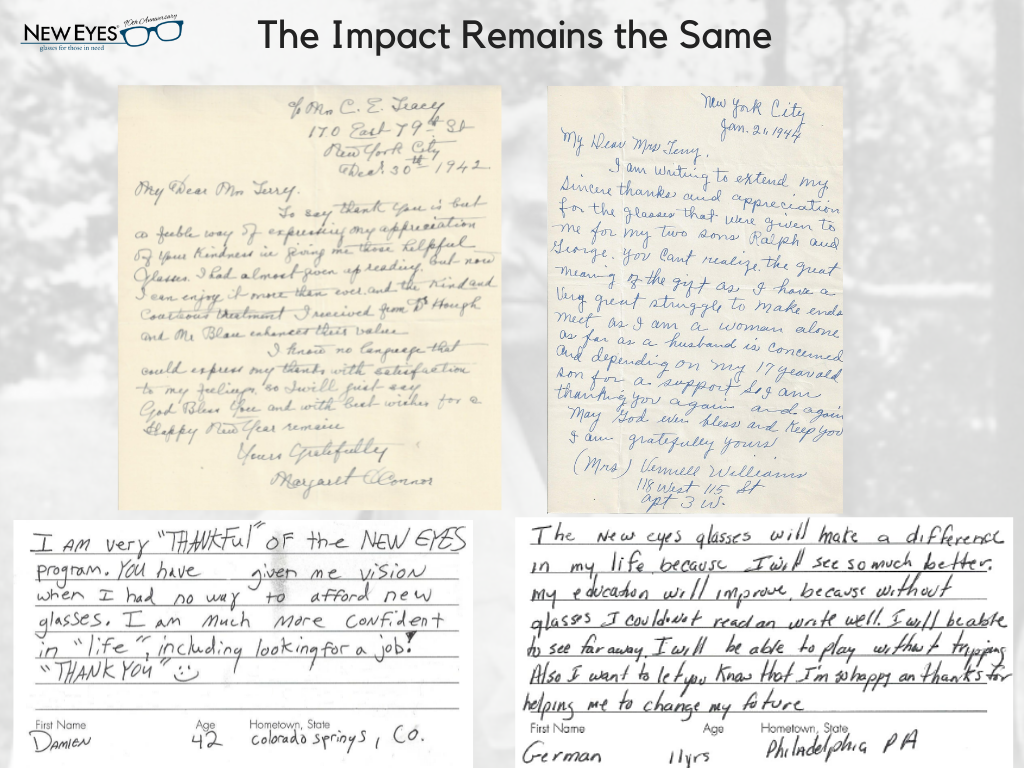 NEW EYES 90th Anniversary
glasses for those in need
The Impact Remains the Same
℅ Mrs C. E. Tracy
170 East 79th St
New York City
Dec. 30th 1942
My Dear Mrs Terry.
To say thank you is but
a feeble way of expressing my appreciation
of your kindness in giving me those helpful
Glasses. I had almost given up reading. but now
I can enjoy it more than ever and the kind and
courteous treatment I received from Dr Hough
and Mr Blau enhances their value
I know no language that
could express my thanks with satisfaction
to my feelings, so I will just say
God Bless You and with best wishes for a
Happy New Year remain
Yours Gratefully
Margaret O'Connor
New York City
Jan. 2, 1944
My Dear Mrs Terry.
I am writing to extend my
Sincere thanks and appreciation
for the glasses that were given to
me for my two sons Ralph and
George. You cant realize the great
meaning of the gift as I have a
very great struggle to make ends
meet as I am a woman alone
as far as a husband is concerned
and depending on my 17 year old
son for a support So I am
thanking you again and again
May God ever bless and keep you
I am gratefully yours
(Mrs) Vernell Williams
118 West 115 St
apt 3 W.
I AM very "THANKFUL" OF the NEW EYES
program. YOU have given me vision
when I had no way to afford new
glasses. I am much more confident
in "life", including looking for a job!
"THANK YOU" ☺
First Name Age Hometown, State
DAMIEN 42 Colorado springs, CO.
The new eyes glasses will make a difference
in my life because I will see so much better.
my education will improve, because without
glasses I couldn't read an write well. I will be able
to see far away. I will be able to play without tripping
Also I want to let you Know that I'm so happy an thanks for
helping me to change my future
First Name Age Hometown, State
German 11yrs Philadelphia PA